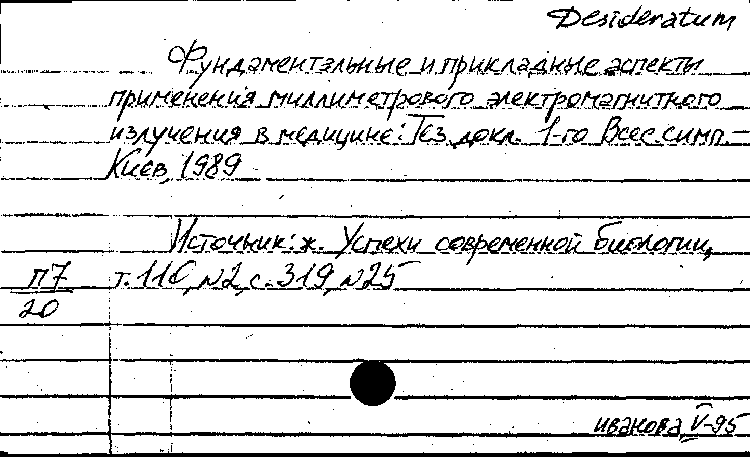 Desideratum
Фундаментальные и прикладные аспекты
применения миллиметрового электромагнитного
излучения в медицине: Тез. докл. 1-го Всес. симп. –
Киев, 1989
Источник: ж. Успехи современной биологии,
п7 т. 110, N2, с. 319, N25
20
иванова, V-95